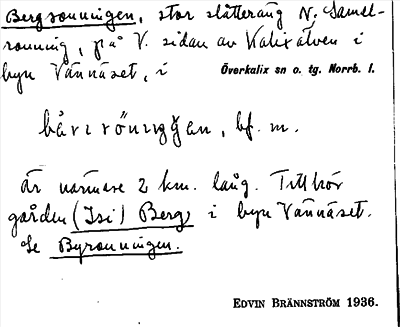 Bergronningen, stor slåtteräng N. Samel-
ronning, på V. sidan av Kalixälven i
byn Vännäset, i Överkalix sn o. tg. Norrb. l.
bf. m.
är närmare 2 km. lång. Tillhör
gården (Isi) Bergs i byn Vännäset.
Se Byronningen.
EDVIN BRÄNNSTRÖM 1936.